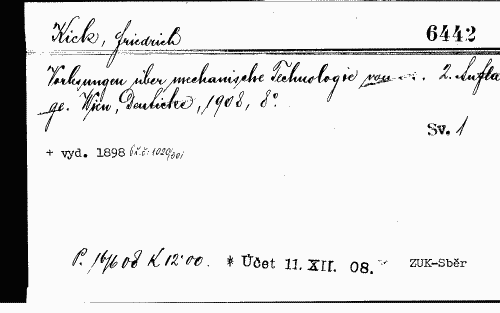 Kick, Friedrich 6442
Vorlesungen über mechanische Technologie 2. Aufla
ge. Wien, Deuticke, 1908, 8°.
Sv. 1
+ vyd. 1898
P. 16/6 08 K 12·00. * Účet 11. XII. 08. ZUK-Sběr